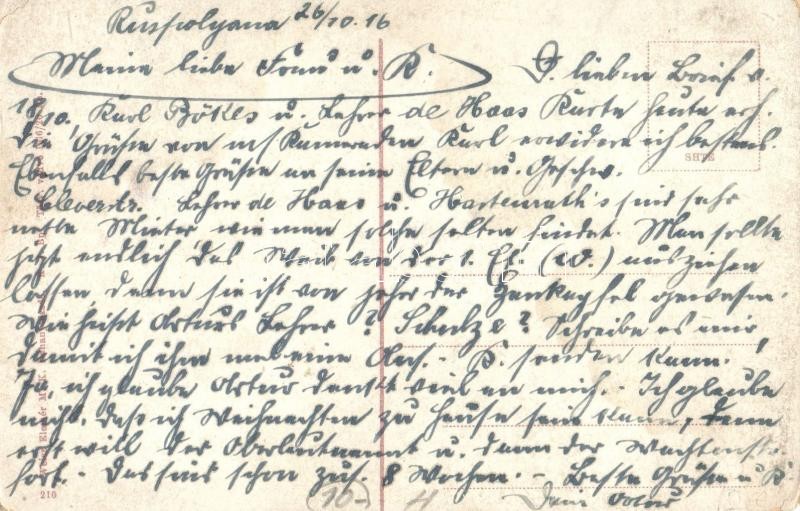 Russolyana 26/10.16
Meine liebe Frau u. K. D. lieben Brief v.
19/10. Karl Bökes u. Lehrer de Haas Karte heute erh.
Die Grüße von m/ Kameraden Karl erwidere ich bestens.
Ebenfalls beste Grüße an seine Eltern u. Geschw.
Cleverstr. Lehrer de Haas u. Hartenrath's sind sehr
nette Mieter wie man solche selten findet. Man sollte
jetzt endlich das Weib von der 1. Et. (W.) ausziehen
lassen, denn sie ist von jeher der Zankapfel gewesen.
Wie heißt Arturs Lehrer? Schulze? Schreibe es mir,
damit ich ihm mal eine Ans.-K. senden kann.
Ja, ich glaube Artur denkt viel an mich. - Ich glaube
nicht, daß ich Weihnachten zu Hause sein kann, denn
erst will der Oberleutnant u. dann der Wachtmstr.
fort. - Das sind schon zus. 8 Wochen. - Beste Grüße u. K.
Dein Artur
210
(10-) H